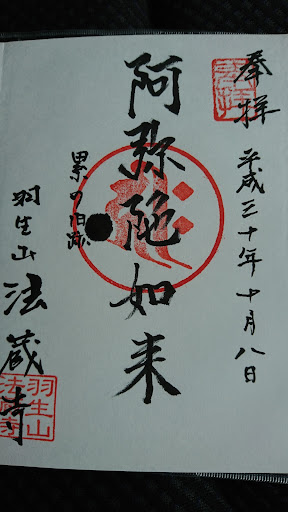 奉拝
平成三十年十月八日
阿弥陀如来
累の旧跡
羽生山
法蔵寺
羽生山
法蔵寺